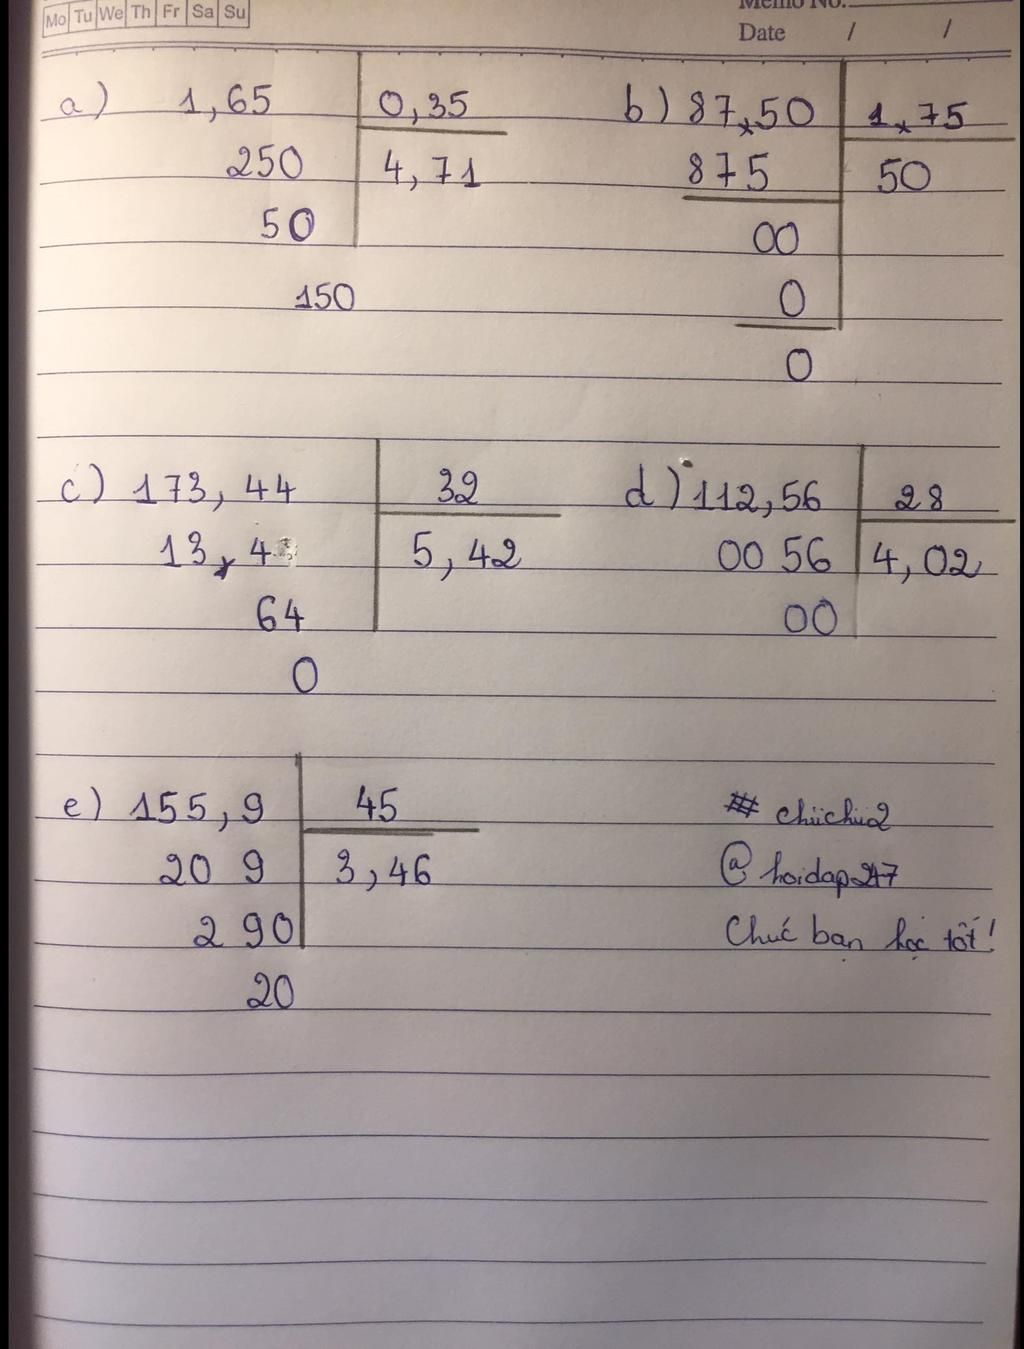 Mo Tu We Th Fr Sa Su
Memo No.
Date / /
a) 1,65 0,35
250 4,71
50
150
b) 87,50 1,75
875 50
00
0
0
c) 173,44 32
13,4 5,42
64
0
d) 112,56 28
00 56 4,02
00
e) 155,9 45
20 9 3,46
2 90
20
# chiichii2
@hoidap247
Chúc bạn học tốt!